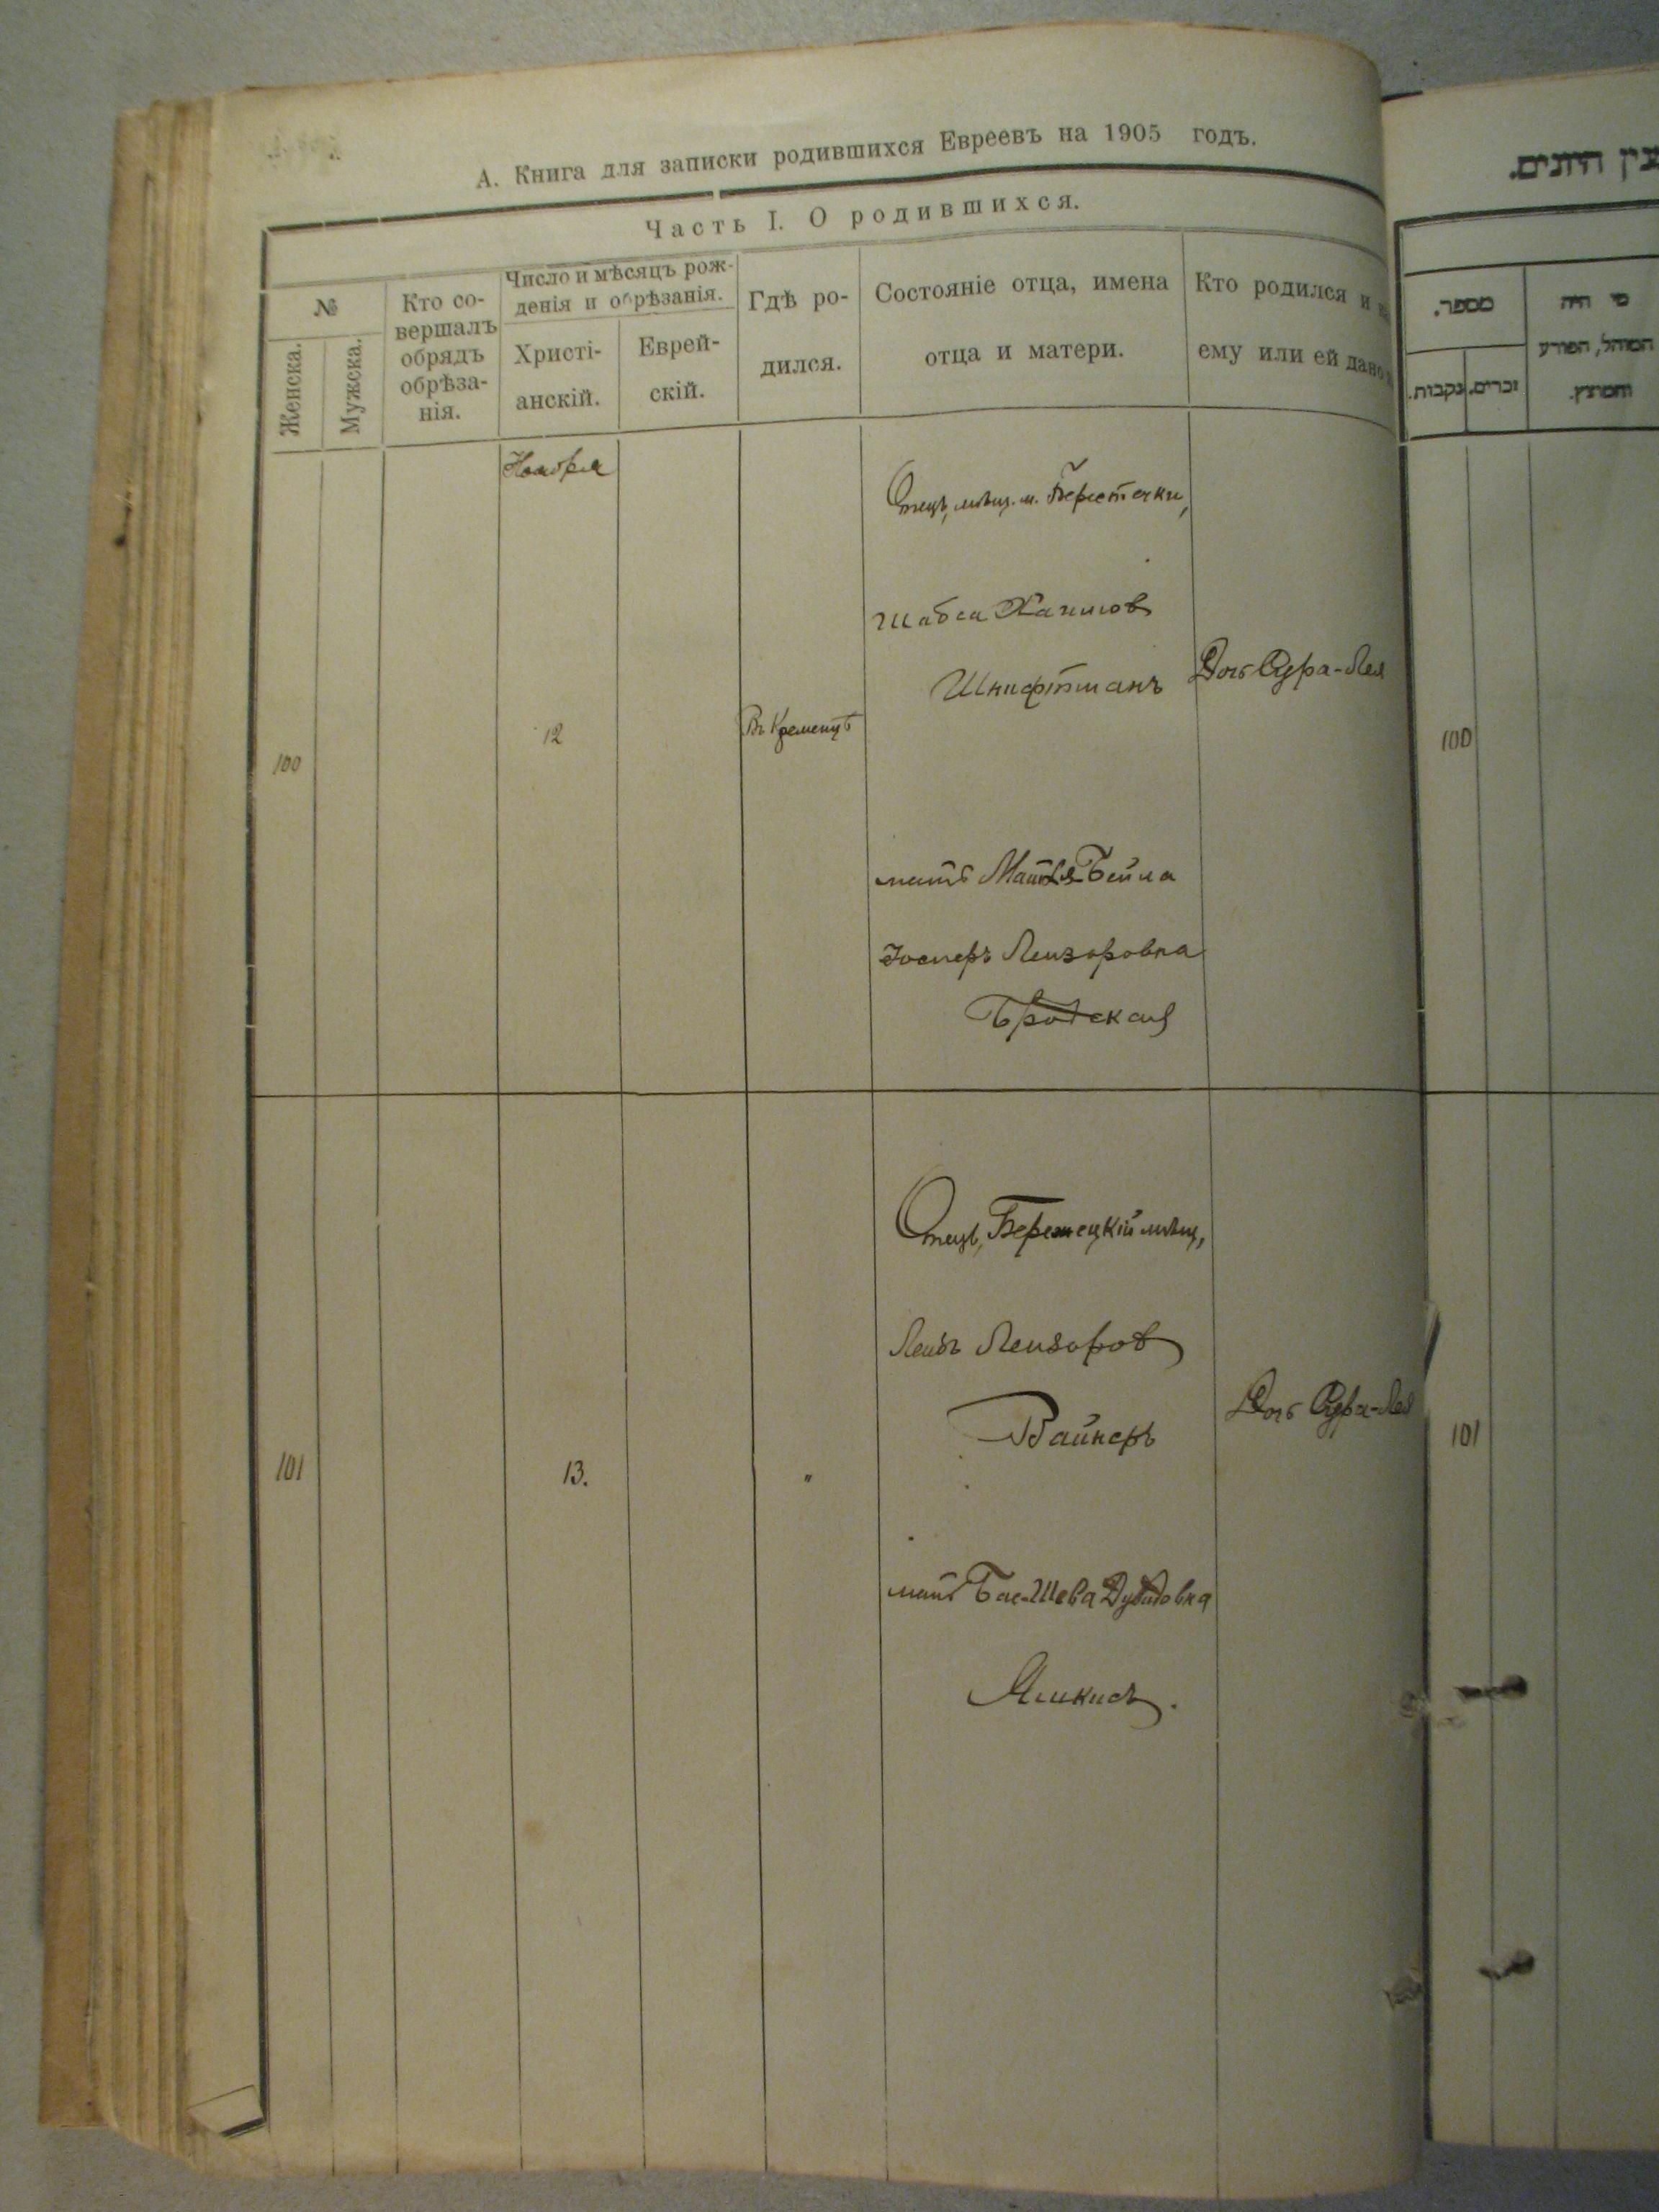 А. Книга для записки родившихся Евреевъ на 1905 годъ.
Часть I. О родившихся.
№
Женска.
Мужска.
Кто со-
вершалъ
обрядъ
обрѣза-
нія.
Число и мѣсяцъ рож-
денія и обрѣзанія.
Христі-
анскій.
Еврей-
скій.
Гдѣ ро-
дился.
Состояніе отца, имена
отца и матери.
Кто родился и
ему или ей дано
Ноября
100
12
Въ Кременцѣ
Отецъ, мѣщ. м. Берестечки,
Шабса Хаимов
Шнифтманъ
мать Бейла
Лейзоровна
Бродская
Дочь Сура-Лея
101
13.
"
Отецъ, Бережецкій мѣщ,
Лейбъ Лейзоров
Вайнеръ
мать Бас-Шева Дувидовна
Дочь Сура-Лея
מספר.
נקבות.
זכרים.
מי היה
המוהל, הפורע
והמוצץ.
100
101